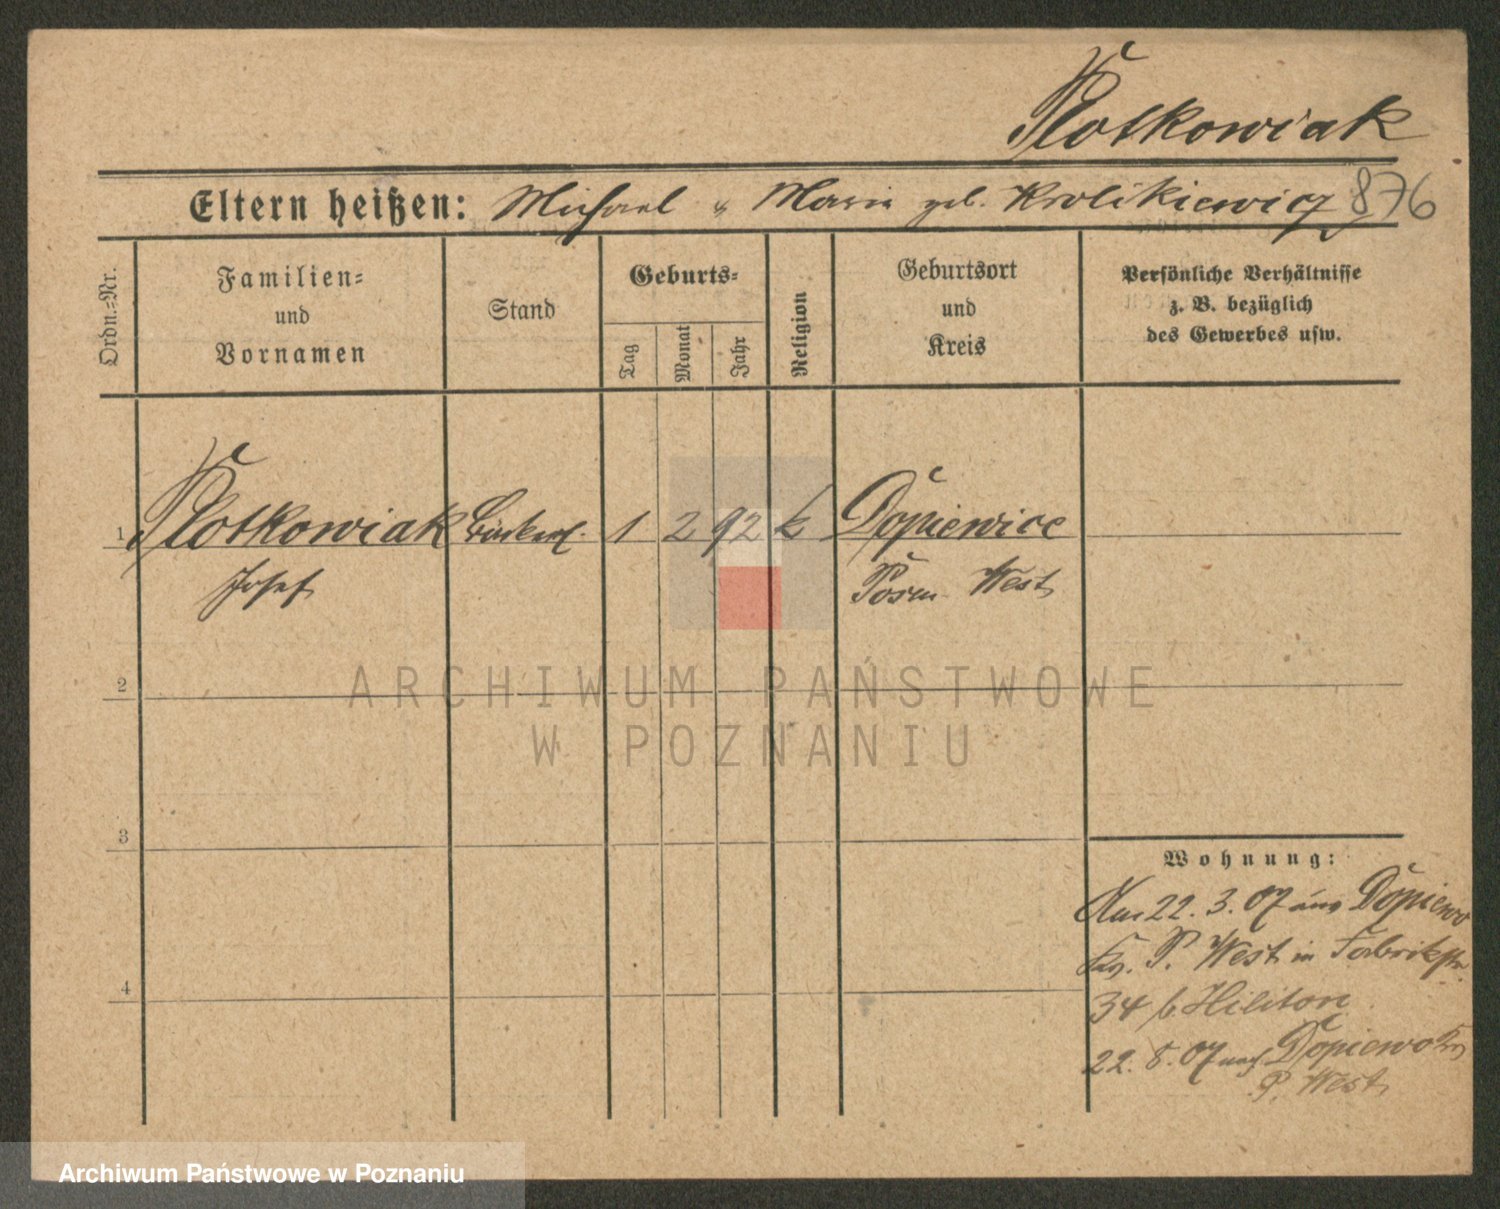 Plotkowiak
Eltern heißen: Michael u Marie geb. Krolikiewicz 876
Ordn.-Nr.
Familien-
und
Vornamen
Stand
Geburts-
Tag
Monat
Jahr
Religion
Geburtsort
und
Kreis
Persönliche Verhältnisse
z. B. bezüglich
des Gewerbes usw.
1 Plotkowiak 1 2 92 k Dopiewice
Josef Posen West
2
ARCHIWUM PAŃSTWOWE
W POZNANIU
3
Wohnung:
Am 22. 3. 07 aus Dopiewo
Krs. P. West in Fabrikstr.
4
34 b. Hiliton
22. 8. 07 nach Dopiewo Krs
P. West
Archiwum Państwowe w Poznaniu